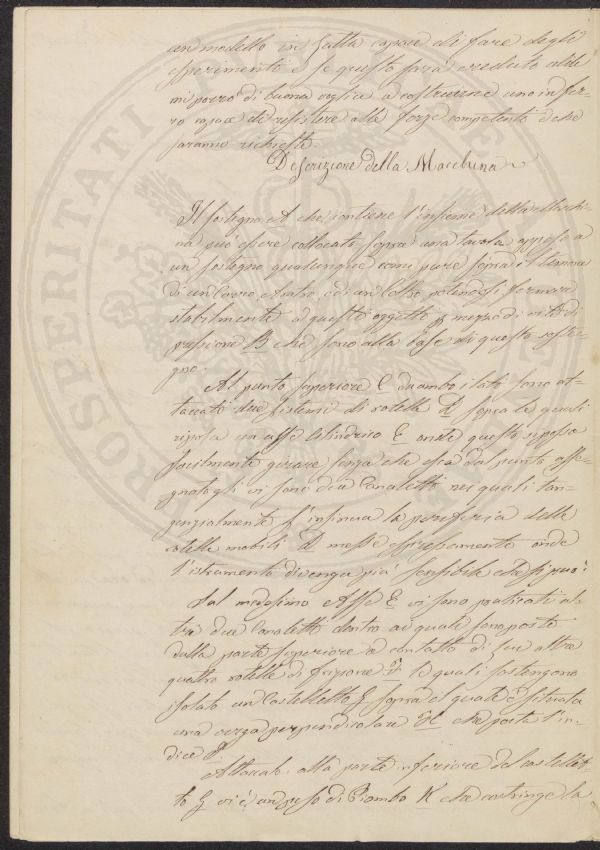 un modello in fatta capace di fare degli
esperimenti e se questo sarà creduto utile
mi porrò di buona voglia a costruirne uno in fer-
ro capace di resistere alle forze competenti che
saranno richieste.
Descrizione della Macchina
Il sostegno A che contiene l'insieme della Macchi-
na può essere collocato sopra una tavola apposo a
un sostegno qualunque come pure sopra il
di un Carro potendosi fermare
stabilmente a questo oggetto p mezzo di viti di
pressione B che sono alla base di questo soste-
gno.
Al punto superiore C da ambo i lati sono at-
taccati due sistemi di rotelle D sopra le quali
riposa un asse Cilindrico E onde questo possa
facilmente girare senza che esca dal punto asse-
gnatogli vi sono due Canaletti nei quali tan-
genzialmente s'insinua la periferia delle
rotelle mobili D messe espressamente onde
l'istrumento divenga più sensibile che si può:
Sul medesimo Asse E vi sono praticati al-
tri due Canaletti dentro ai quali sono poste
dalla parte superiore a contatto di sue altre
quattro rotelle di frizione F le quali sostengono
isolato un Castelletto G sopra al quale è situata
una verga perpendicolare H che porta l'in-
dice I.
Attaccato alla parte inferiore del castellet-
to G vi è un peso di Piombo K che costringe la
PROSPERITATI